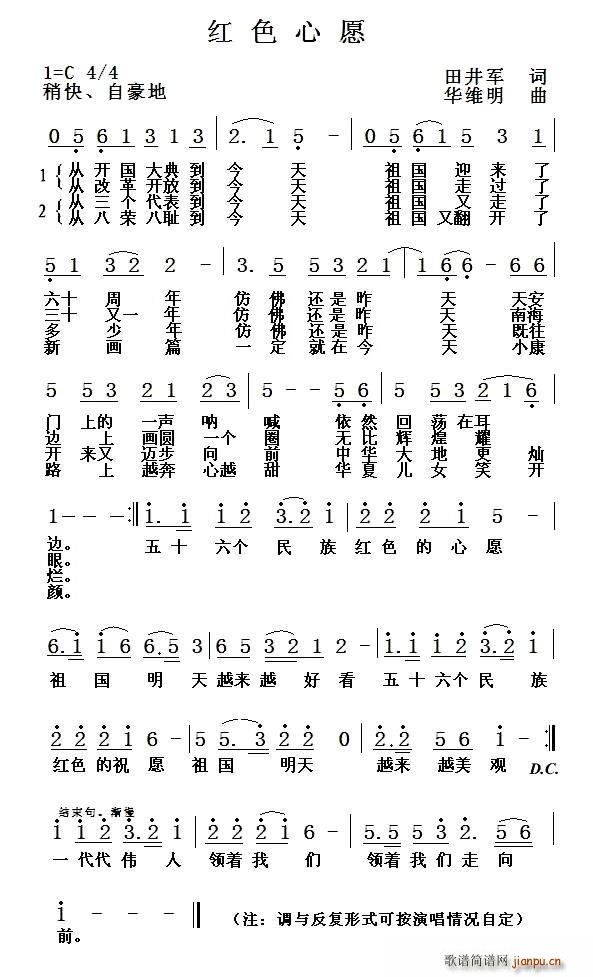 红色心愿
1=C 4/4 田井军 词
稍快、自豪地 华维明 曲
0 5 6 1 3 1 3 | 2. 1 5 - | 0 5 6 1 5 3 1 |
1 从开国大典到今天 祖国迎来了
从改革开放到今天 祖国走过了
2 从三个代表到今天 祖国又走了
从八荣八耻到今天 祖国又翻开了
5 1 3 2 2 - | 3. 5 5 3 2 1 | 1 6 6 - 6 1 |
六十周年 仿佛还是昨天 天安
三十又一年 仿佛还是昨天 南海
多少年 仿佛还是昨天 既往
新画篇 一定就在今天 小康
5 5 3 2 1 2 3 | 5 - - 5 6 | 5 5 3 2 1 6 |
门上的一声呐喊 依然回荡在耳
边上画圆一个圈 无比辉煌耀
开来又迈步向前 中华大地更灿
路上越奔心越甜 华夏儿女笑开
1 - - - :|| 1. 1 1 2 3. 2 1 | 2 2 2 2 1 5 - |
边。 五十六个民族红色的心愿
眼。
烂。
颜。
6. 1 1 6 6. 5 3 | 6 5 3 2 3 2 1 2 - | 1. 1 1 6 2 3. 2 1 |
祖国明天越来越好看 五十六个民族
2 2 2 1 6 - | 5 5. 3 2 2 0 | 2. 2 5 6 1 - :||
红色的祝愿 祖国明天 越来越美观 D.C.
结束句。渐慢
1 1 2 3. 2 1 | 2 2 2 1 1 - | 5. 5 5 3 2. 5 6 |
一代代伟人 领着我们 领着我们走向
1 - - - ||
前。 (注：调与反复形式可按演唱情况自定)
歌谱简谱网
jianpu.cn